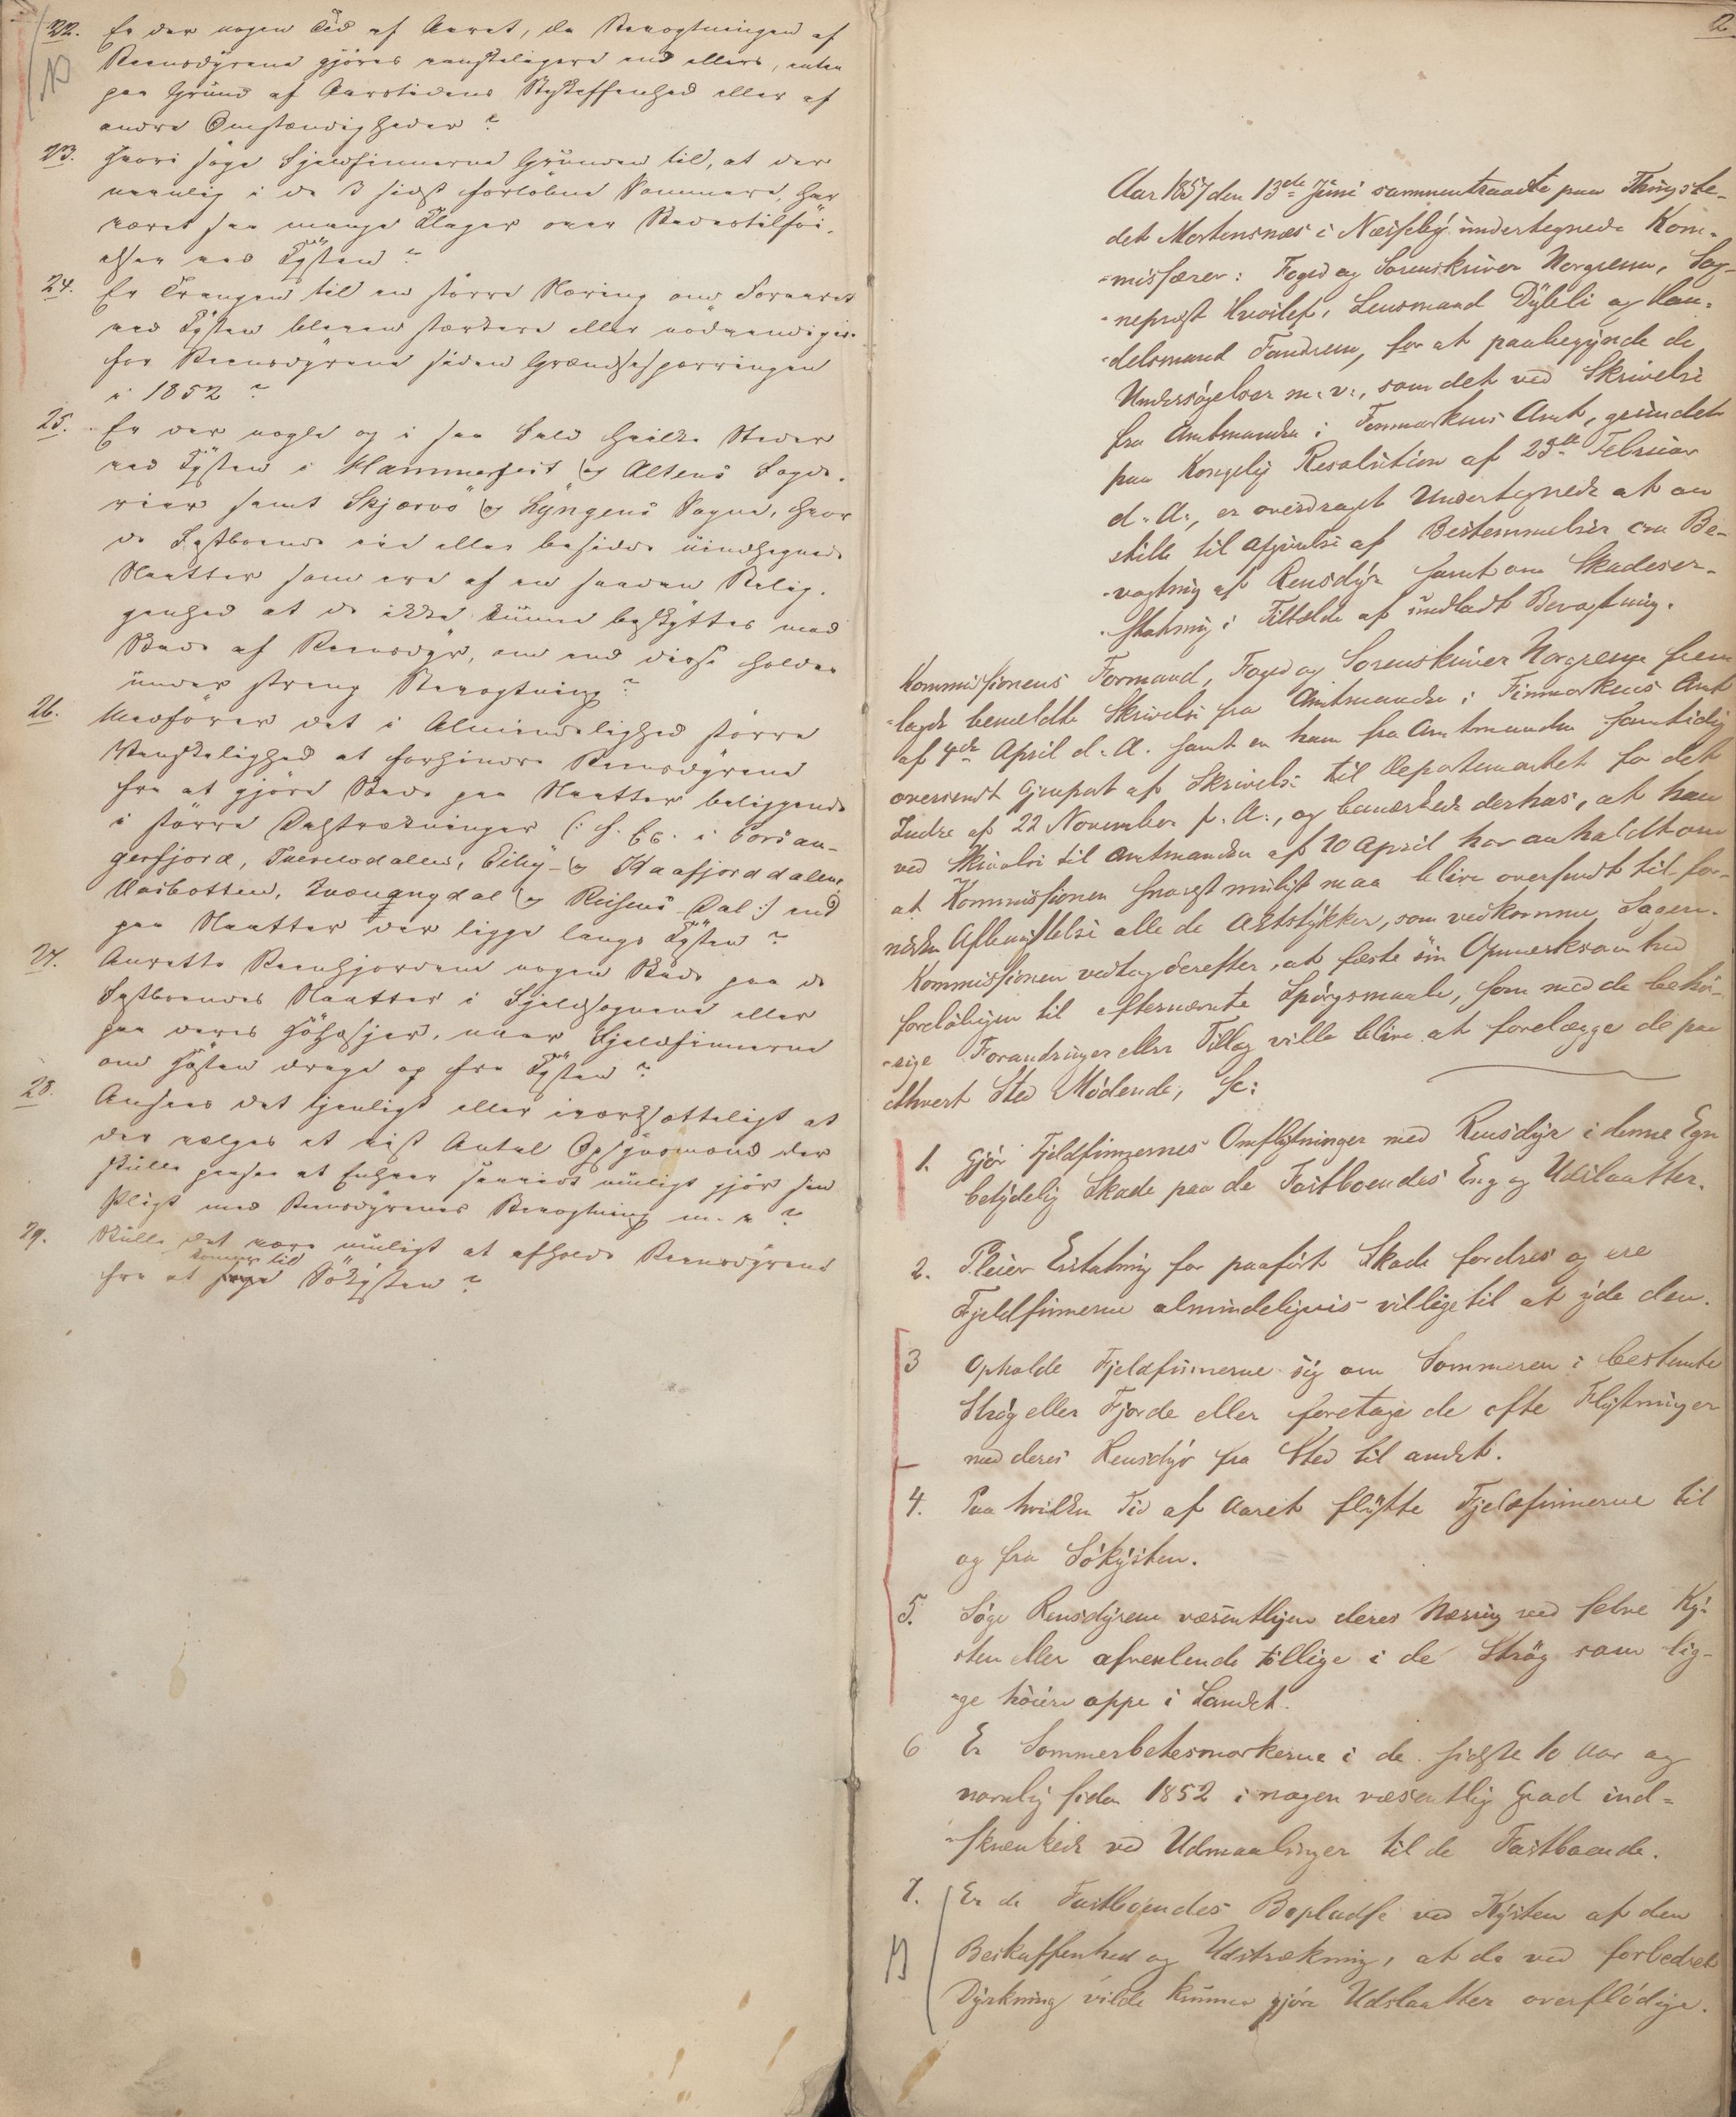 22. Er der nogen Tid af Aaret, da Bevogtningen af
Reensdyrene gjöres vanskeligere end ellers, enten
paa Grund af Aarstidens Beskaffenhed eller af
andre Omstændigheder?
23. Hvori søge Fjeldfinnerne Grunden til, at der
navnlig i de 3 sidst forløbne Sommere, har
været saa mange Klager over Skadestilföi-
elser ved Kysten?
24. Er Trangen til en större Næring om Foraaret
ved Kysten bleven stærkere eller nödvendigere
for Reensdyrene siden Grændsespærringen
i 1852?
25. Er der nogle og i saa Fald hvilke Steder
ved Kysten i Hammerfest og Altens Fogde-
rier samt Skjærvö og Lyngens Sogne, hvor
de Fastboende eie eller besidde uindhegnede
Slaatter som ere af en saadan Belig-
genhed at de ikke kunne beskyttes mod
Skade af Reensdyr, om end disse holdes
under streng Bevogtning?
26. Medförer det i Almindelighed större
Vanskelighed at forhindre Reensdyrene
fra at gjöre Skade paa Slaatter beliggende
i större Dalstrækninger (: f. Ex. i Porsan-
gerfjord, Tverelvdalen, Eiby- og Kaafjorddalene,
Kvænangsdal og Reisens Dal :) end
paa Slaatter der ligge langs Kysten?
27. Anrette Reenhjordene nogen Skade paa de
Fastboendes Slaatter i Fjeldsognene eller
paa deres Höhæsjer, naar Fjeldfinnerne
om Hösten drage op fra Kysten?
28. Ansees det tjenligt eller iværksætteligt at
der vælges et vist Antal Opsynsmænd der
skulle paasee at Enhver saavidt muligt gjör sin
Pligt med Reensdyrenes Bevogtning m. v.?
29. Skulle det være muligt at afholde Reensdyrene
komme til
fra at söge Sökysten?
2.
Aar 1857 den 13de Juni sammentraadte paa Thingste-
det Mortensnæs i Næsseby undertegnede Kom-
-missærer: Foged og Sorenskriver Norgreen, Sog-
-neprest Hvoslef, Lensmand Dybli og Han-
-delsmand Fandrem, for at paabegynde de
Undersøgelser m. v., som det ved Skrivelse
fra Amtmanden i Finmarkens Amt, grundet
paa Kongelig Resolution af 25de Februar
d. A., er overdraget Undertegnede at an
stille til Afgivelse af Bestemmelser om Be-
-vogtning af Rensdyr samt om Skadeser-
-statning i Tilfælde af undladt Bevogtning.
Kommissionens Formand, Foged og Sorenskriver Norgreen frem
-lagde bemeldte Skrivelse fra Amtmanden i Finmarkens Amt
af 4de April d. A. samt en ham fra Amtmanden samtidig
oversendt Gjenpart af Skrivelse til Departementet for det
Indre af 22 November f. A., og bemærkede derhos, at han
ved Skrivelse til Amtmanden af 20 April har anholdt om
at Kommissionen snarest muligt maa blive oversendt til for-
nöden Afbenyttelse alle de Aktstykker, som vedkomme Sagen.
Kommissionen vedtog derefter, at fæste sin Opmærksomhed
foreløbigen til efternævnte Spörgsmaale, som med de behö-
-vige Forandringer eller Tillæg ville blive at forelægge de paa
ethvert Sted Mødende, sc:
1. Gjör Fjeldfinnernes Omflytninger med Rensdyr i denne Egn
betydelig Skade paa de Fastboendes Eng og Udslaatter.
2. Pleier Erstatning for paaført Skade fordres og ere
Fjeldfinnerne almindeligvis villige til at yde den.
3 Opholde Fjeldfinnerne sig om Sommeren i bestemte
Strög eller Fjorde eller foretage de ofte Flytninger
med deres Rensdyr fra Sted til andet.
4. Paa hvilken Tid af Aaret flytte Fjeldfinnerne til
og fra Søkysten.
5. Söge Rensdyrene væsentligen deres Næring ved selve Ky-
sten eller afvexlende tillige i de Strög som lig-
-ge höiere oppe i Landet.
6 Er Sommerbetesmarkerne i de sidste 10 Aar og
navnlig siden 1852 i nogen væsentlig Grad ind-
-skrænkede ved Udmaalinger til de Fastboende.
7. Er de Fastboendes Bopladse ved Kysten af den
Beskaffenhed og Udstrækning, at de ved forbedret
Dyrkning vilde kunne gjöre Udslaatter overflödige.